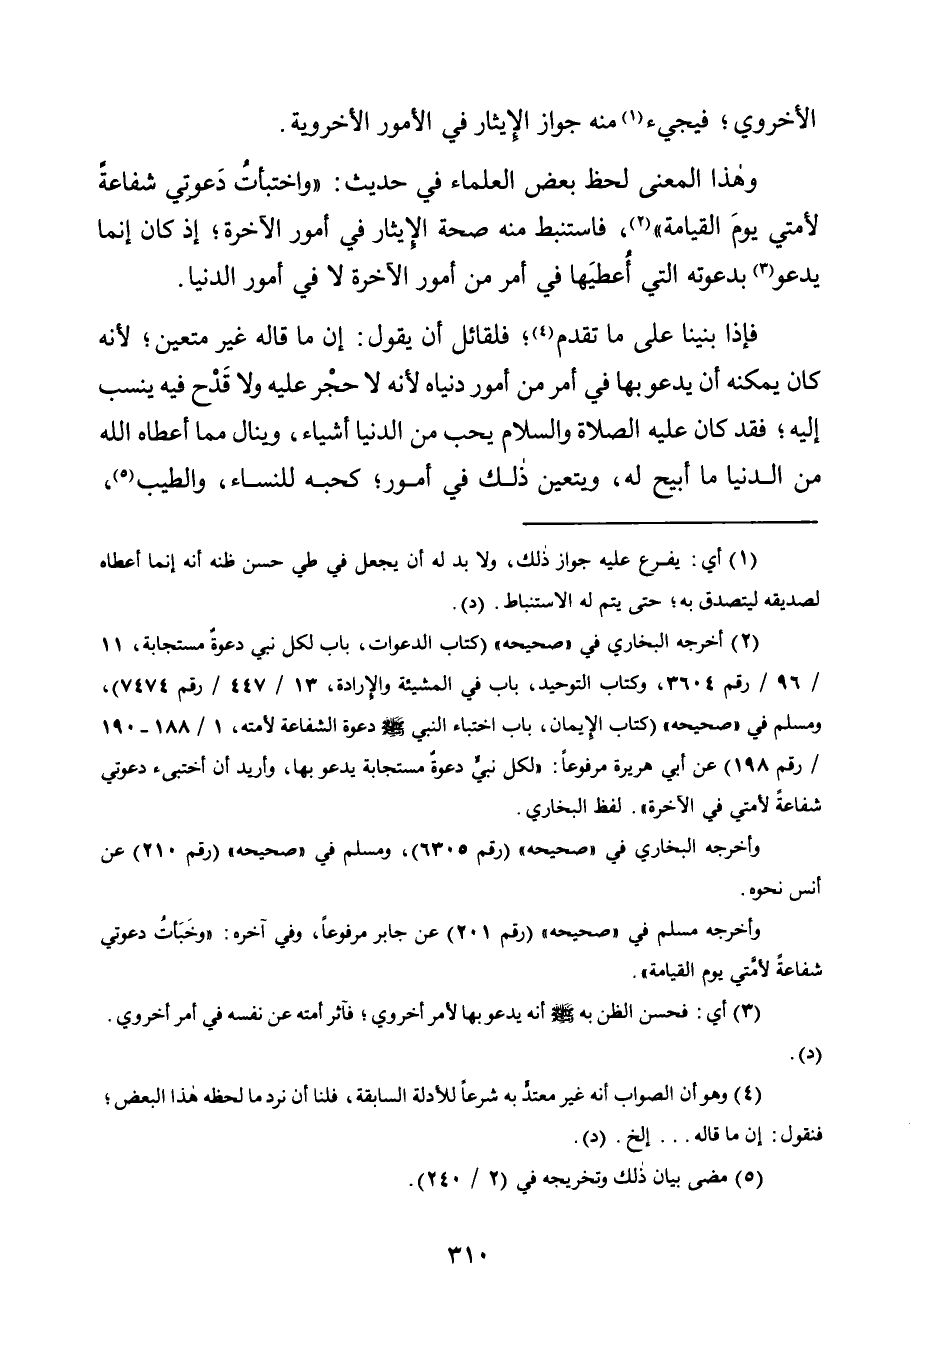 الأخروي؛ فيجيء(١) منه جواز الإيثار في الأمور الأخروية.
وهٰذا المعنى لحظ بعض العلماء في حديث: «واختبأتُ دَعوتِي شفاعةً
لأمتي يومَ القيامة»(٢)، فاستنبط منه صحة الإيثار في أمور الآخرة؛ إذ كان إنما
يدعو(٣) بدعوته التي أُعطيَها في أمر من أمور الآخرة لا في أمور الدنيا.
فإذا بنينا على ما تقدم(٤)؛ فلقائل أن يقول: إن ما قاله غير متعين؛ لأنه
كان يمكنه أن يدعو بها في أمر من أمور دنياه لأنه لا حجْر عليه ولا قَدْح فيه ينسب
إليه؛ فقد كان عليه الصلاة والسلام يحب من الدنيا أشياء، وينال مما أعطاه الله
من الدنيا ما أبيح له، ويتعين ذٰلك في أمور؛ كحبه للنساء، والطيب(٥)،
(١) أي: يفرع عليه جواز ذٰلك، ولا بد له أن يجعل في طي حسن ظنه أنه إنما أعطاه
لصديقه ليتصدق به؛ حتى يتم له الاستنباط. (د).
(٢) أخرجه البخاري في «صحيحه» (كتاب الدعوات، باب لكل نبي دعوةٌ مستجابة، ١١
/ ٩٦ / رقم ٣٦٠٤، وكتاب التوحيد، باب في المشيئة والإرادة، ١٣ / ٤٤٧ / رقم ٧٤٧٤)،
ومسلم في «صحيحه» (كتاب الإيمان، باب اختباء النبي ﷺ دعوة الشفاعة لأمته، ١ / ١٨٨ - ١٩٠
/ رقم ١٩٨) عن أبي هريرة مرفوعاً: «لكل نبيٍّ دعوةٌ مستجابة يدعو بها، وأريد أن أختبىء دعوتي
شفاعةً لأمتي في الآخرة». لفظ البخاري.
وأخرجه البخاري في «صحيحه» (رقم ٦٣٠٥)، ومسلم في «صحيحه» (رقم ٢١٠) عن
أنس نحوه.
وأخرجه مسلم في «صحيحه» (رقم ٢٠١) عن جابر مرفوعاً، وفي آخره: «وخَبَأتُ دعوتي
شفاعةً لأمَّتي يوم القيامة».
(٣) أي: فحسن الظن به ﷺ أنه يدعو بها لأمر أخروي؛ فآثر أمته عن نفسه في أمر أخروي.
(د).
(٤) وهو أن الصواب أنه غير معتدٍّ به شرعاً للأدلة السابقة، فلنا أن نرد ما لحظه هٰذا البعض؛
فنقول: إن ما قاله... إلخ. (د).
(٥) مضى بيان ذٰلك وتخريجه في (٢ / ٢٤٠).
٣١٠